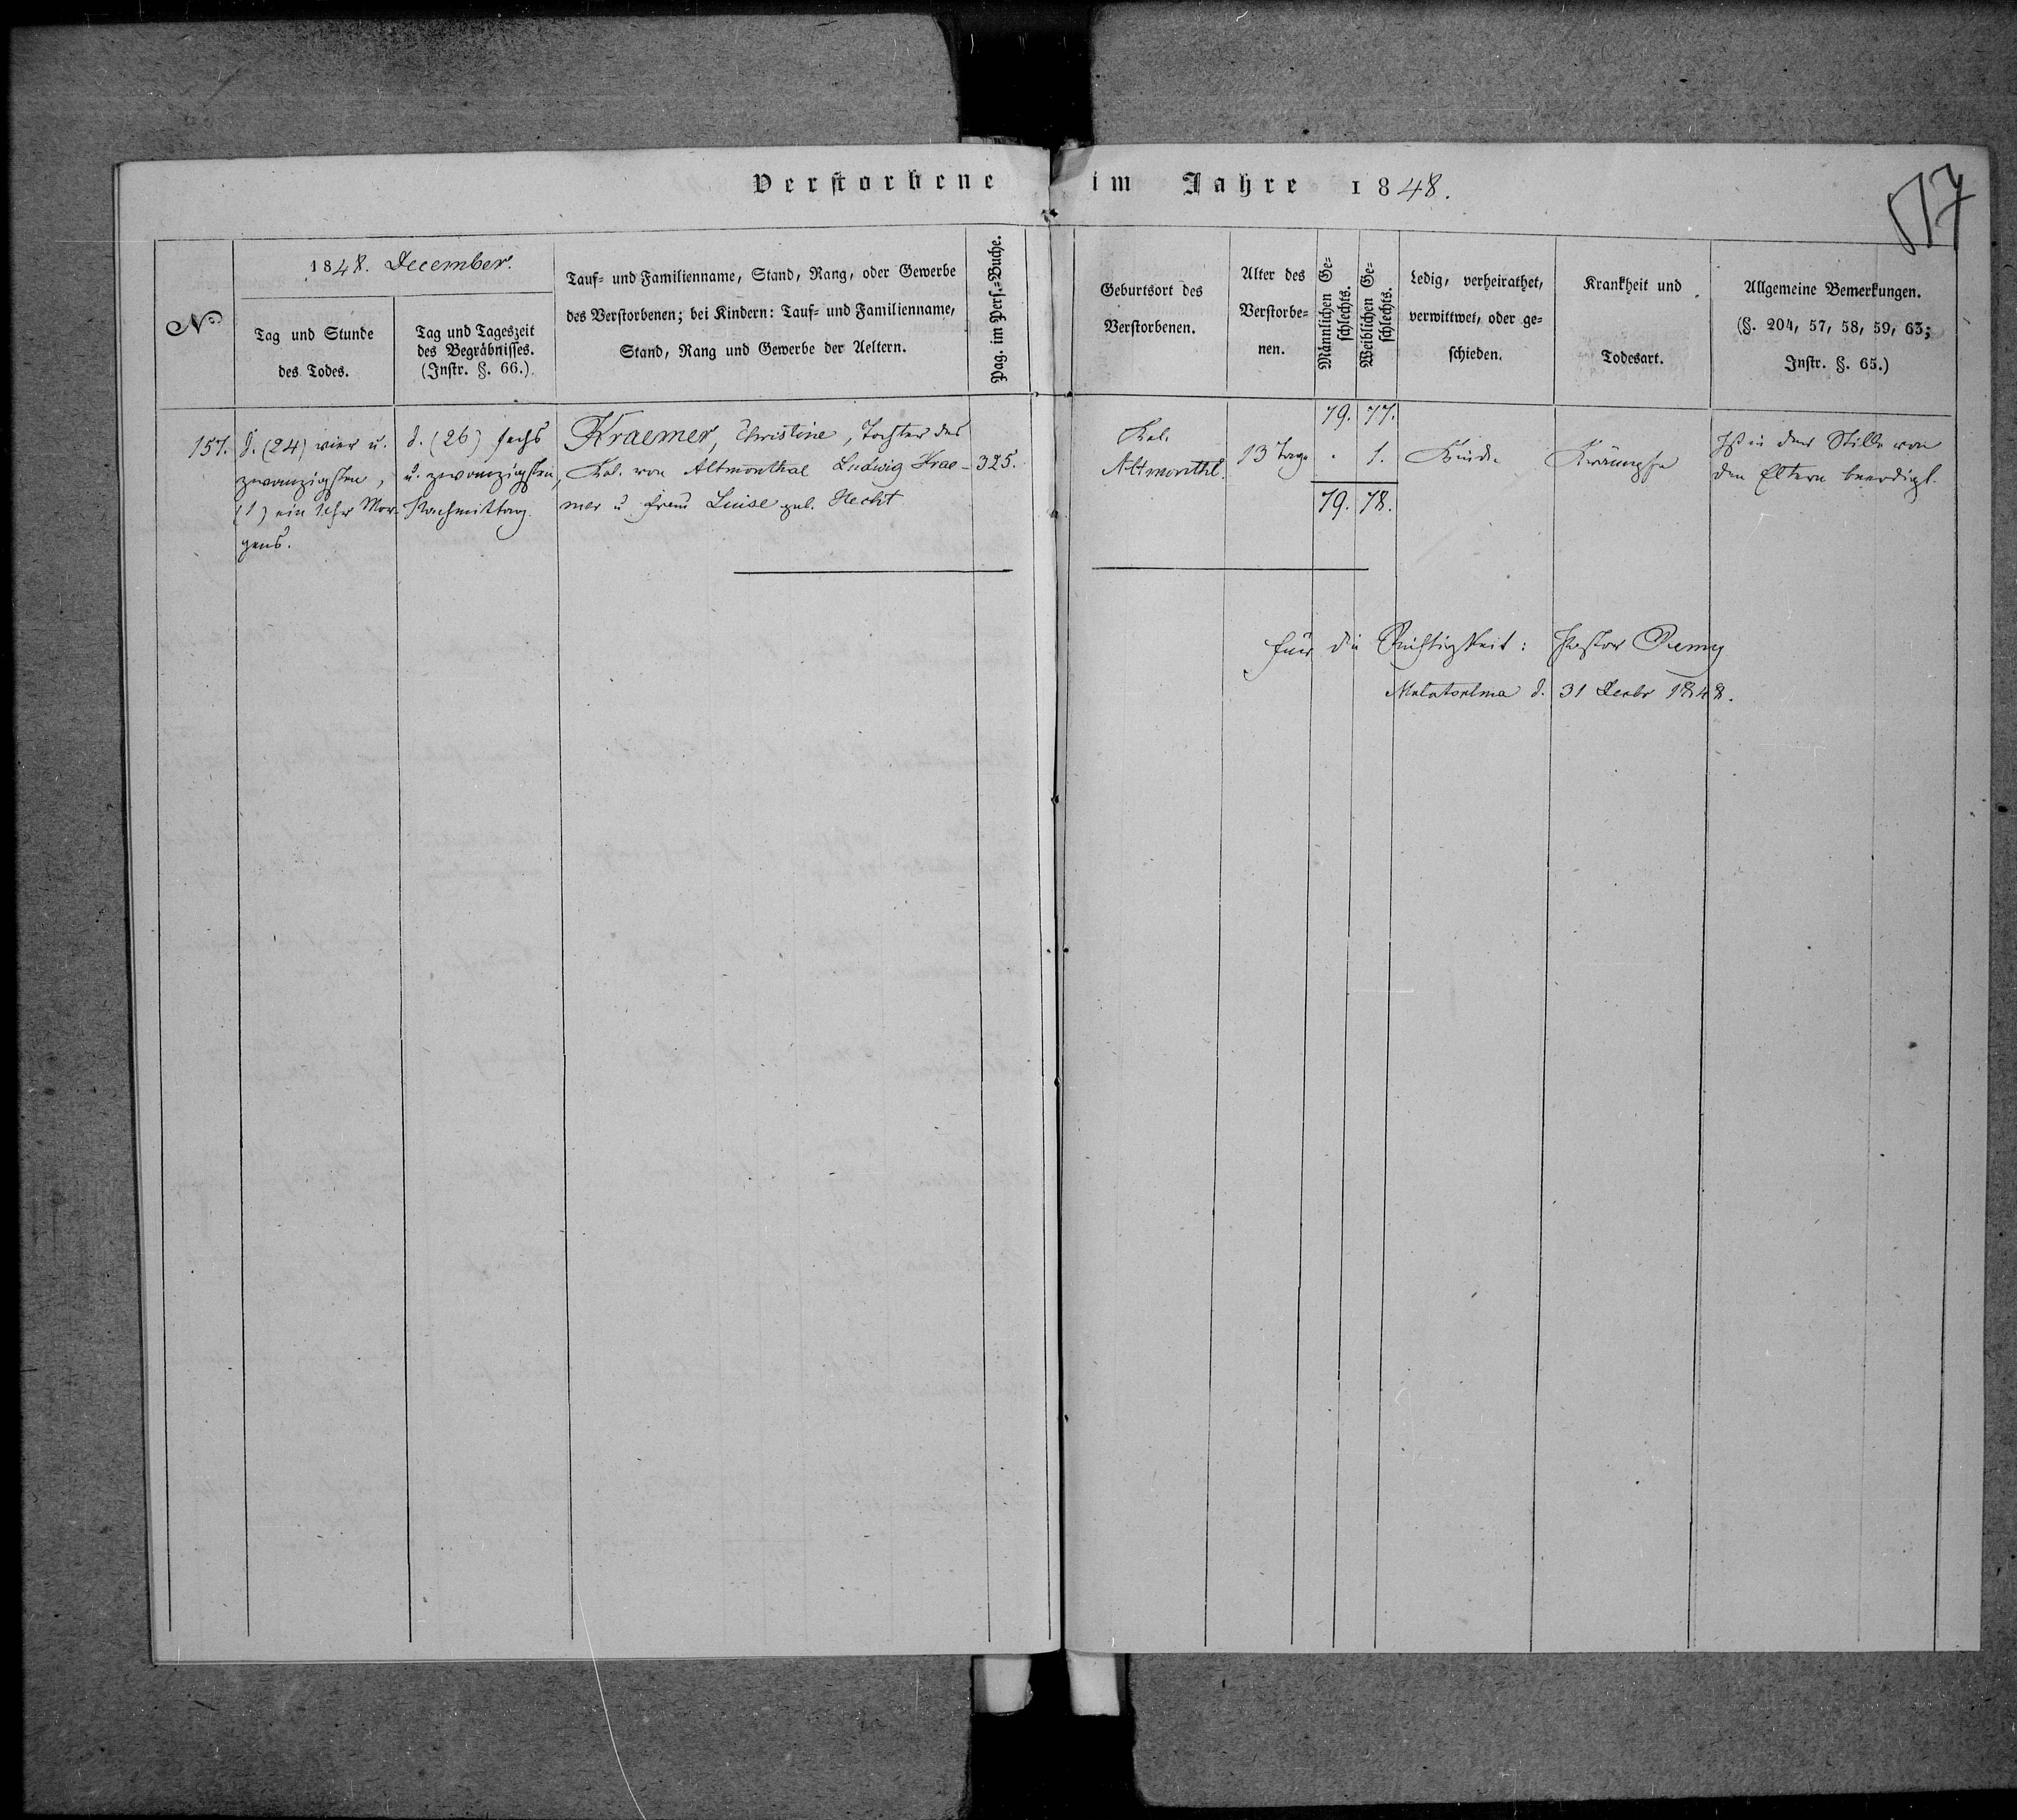 Verstorbene im Jahre 1848.
517
No
1848. December.
Tag und Stunde
des Todes.
Tag und Tageszeit
des Begräbnisses.
(Instr. §. 66.)
Tauf- und Familienname, Stand, Rang, oder Gewerbe
des Verstorbenen; bei Kindern: Tauf- und Familienname,
Stand, Rang und Gewerbe der Aeltern.
Pag. im Pers.-Buche.
Geburtsort des
Verstorbenen.
Alter des
Verstorbe-
nen.
Männlichen Ge-
schlechts.
Weiblichen Ge-
schlechts.
Ledig, verheirathet,
verwittwet, oder ge-
schieden.
Krankheit und
Todesart.
Allgemeine Bemerkungen.
(§. 204, 57, 58, 59, 63;
Instr. §. 65.)
157.
d. (24) vier u.
zwanzigsten,
(1) ein Uhr Mor-
gens.
d. (26) sechs
u. zwanzigsten,
Nachmittag.
Kraemer, Christine, Tochter des
Kol. von Altmonthal Ludwig Krae-
mer u. Frau Luise geb. Hecht
325.
Kol.
Altmonthl.
13 Tage
79. 77.
. 1.
79. 78.
Kind.
Krämpfe
Ist in der Stille von
den Eltern beerdigt.
Für die Richtigkeit: Pastor
d. 31 Decbr 1848.